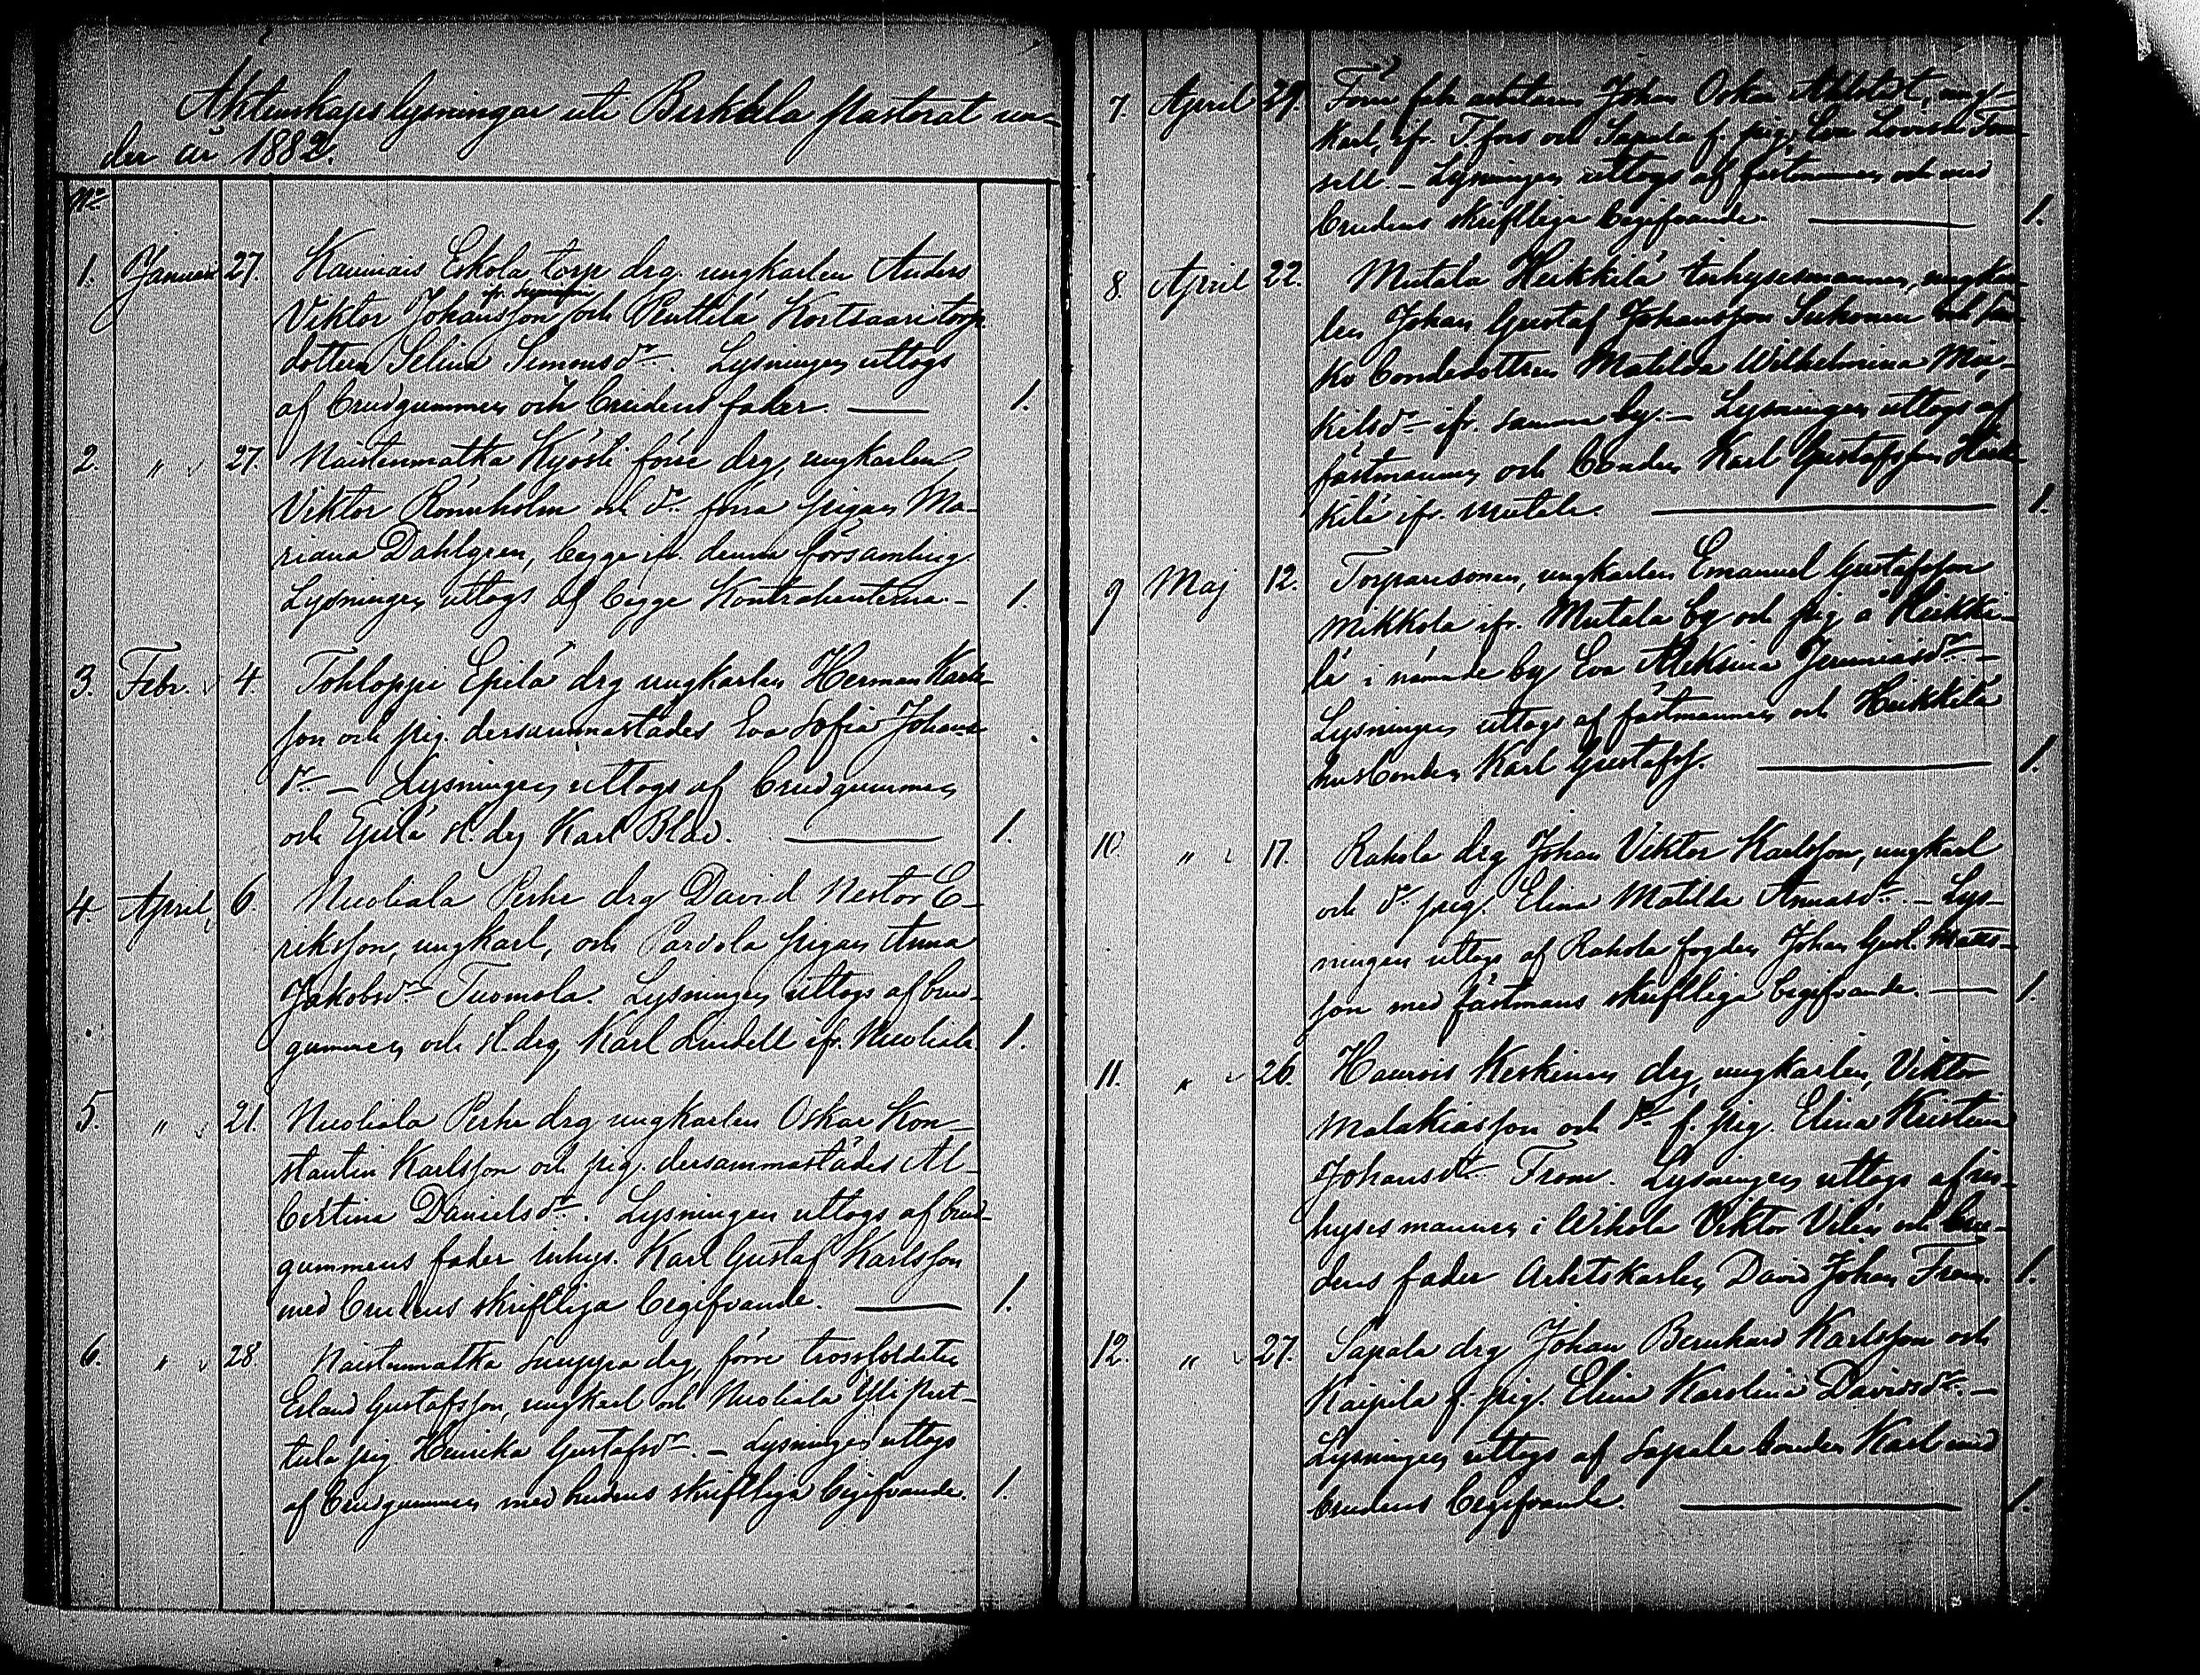 Äktenskapslysningar uti Birkkala pastorat un-
der år 1882.
No
1. Januari 27. Kauniais Eskola torp drg. ungkarlen Anders
Viktor Johansson och Penttilä Kortsaari torp.
dottern Selina Simonsdr. Lysningen uttogs
af brudgummen och brudens fader. — 1.
2. " 27. Naistenmatka Kyösti förre drg, ungkarlen
Viktor Rönnholm och dr förra pigan Ma-
riana Dahlgren, begge ifr. denna församling.
Lysningen uttogs af begge Kontrahenterna. — 1.
3. Febr. 4. Tohloppi Epilä drg ungkarlen Herman Karls-
son och pig. dersammastädes Eva Sofia Johans-
dr — Lysningen uttogs af brudgummen
och Epilä st. drg Karl Blad. — 1.
4. April 6. Nuoliala Perhe drg David Nestor E-
riksson, ungkarl, och Pardola pigan Anna
Jakobsdr Tuomola. Lysningen uttogs af brud-
gummen och st. drg, Karl Lindell ifr. Nuoliala. 1.
5. " 21. Nuoliala Perhe drg ungkarlen Oskar Kon-
stantin Karlsson och pig. dersammastädes Al-
bertina Danielsdr. Lysningen uttogs af brud-
gummens fader inhys. Karl Gustaf Karlsson
med brudens skriftliga begifvande. — 1.
6. " 28. Naistenmatka Simppa drg, förre trossoldaten
Erland Gustafsson, ungkarl och Nuoliala Yli Punt-
tula pig. Henrika Gustafsdr — Lysningen uttogs
af brudgummen med brudens skriftliga begifvande. 1.
7. April 29. Förre fabr. arbetaren Johan Oskar Ahlstedt, ung-
karl, ifr. T.fors och Sapula f. pig. Eva Lovisa
sell. — Lysningen uttogs af fästmannen och med
brudens skriftliga begifvande. — 1.
8. April 22. Mutala Heikkilä inhysesmannen, ungkar-
len Johan Gustaf Johansson Suhonen och
ko bondedottren Matilda Wilhelmina Mi-
kelsdr ifr. samma by. — Lysningen uttogs af
fästmannen och bonden Karl Gustafsson Heik-
kilä ifr. Mutala. — 1.
9 Maj 12. Torparesonen, ungkarlen Emanuel Gustafsson
Mikkola ifr. Mutala by och pig å Heikki-
lä i nämnde by Eva Aleksina Jeremiasdr —
Lysningen uttogs af fästmannen och Heikkilä
husbonden Karl Gustafss. — 1.
10. " 17. Rahola drg Johan Viktor Karlsson, ungkarl
och dr pig. Elina Matilda Annasdr. — Lys-
ningen uttogs af Rahola fogden Johan Gust. Matts-
son med fästmans skriftliga begifvande. — 1.
11. " 26. Haurois Keskinen drg, ungkarlen, Viktor
Malakiasson och dr f. pig. Elina Kristina
Johansdr From. Lysningen uttogs af in-
hyses mannen i Wihola Viktor Vilén och bru-
dens fader Arbetskarlen David Johan From. 1.
12. " 27. Sapala drg Johan Bernhard Karlsson och
Kaipila f. pig. Elina Karolina Davidsdr. —
Lysningen uttogs af Sapala bonden Karl med
brudens begifvande. — 1.